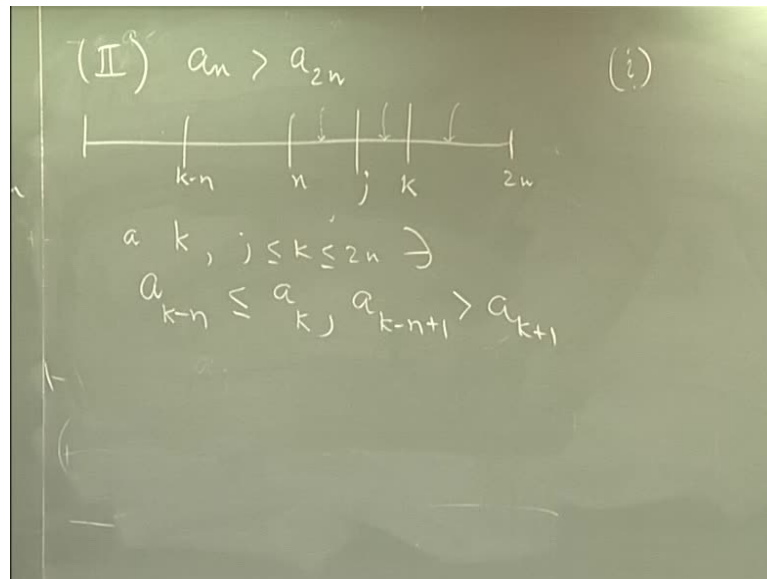 (II) aₙ > a₂ₙ (i)
k-n n j k 2n
a k, j ≤ k ≤ 2n ∋
a_{k-n} ≤ a_k, a_{k-n+1} > a_{k+1}